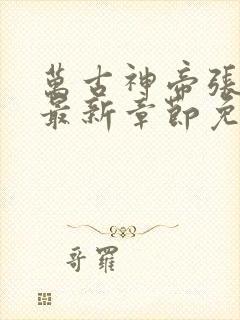 萬古神帝張
最新章節免
哥羅